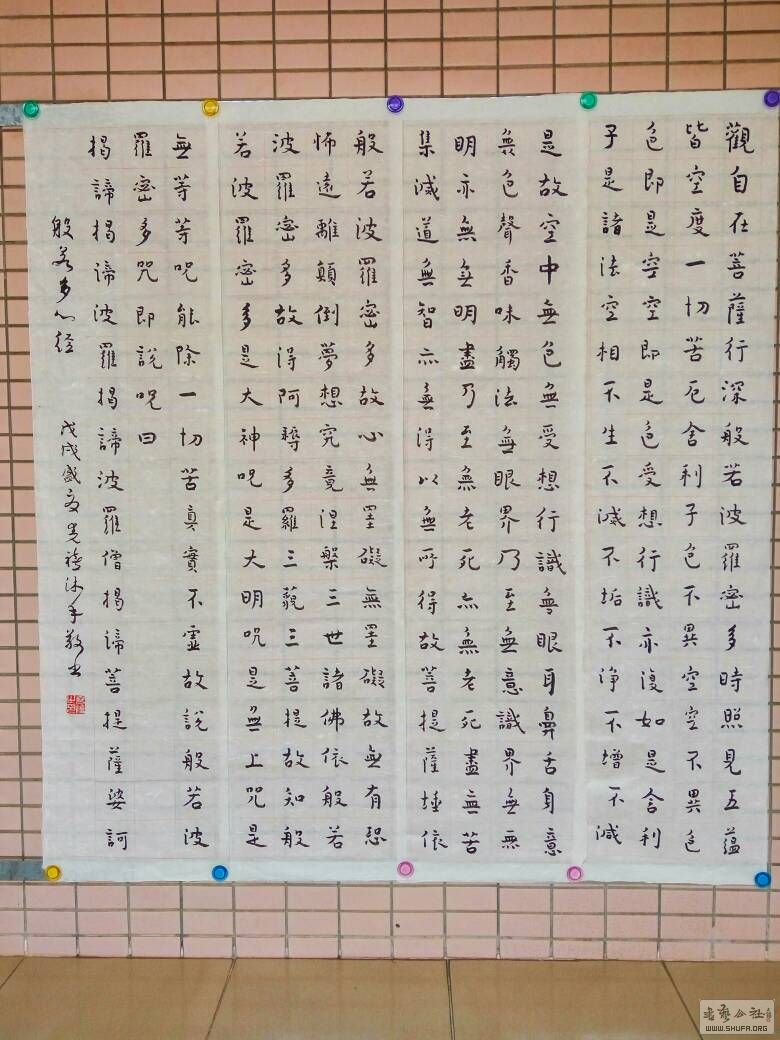 觀自在菩薩行深般若波羅密多時照見五蘊
皆空度一切苦厄舍利子色不異空空不異色
色即是空空即是色受想行識亦復如是舍利
子是諸法空相不生不滅不垢不淨不增不減
是故空中無色無受想行識無眼耳鼻舌身意
無色聲香味觸法無眼界乃至無意識界無無
明亦無無明盡乃至無老死亦無老死盡無苦
集滅道無智亦無得以無所得故菩提薩埵依
般若波羅密多故心無罣礙無罣礙故無有恐
怖遠離顛倒夢想究竟涅槃三世諸佛依般若
波羅密多故得阿耨多羅三藐三菩提故知般
若波羅密多是大神呪是大明呪是無上咒是
無等等呪能除一切苦真實不虛故說般若波
羅密多咒即說呪曰
揭諦揭諦波羅揭諦波羅僧揭諦菩提薩婆訶
般若多心经
戊戌盛夏沐手敬书
书艺公社
WWW.SHUFA.ORG